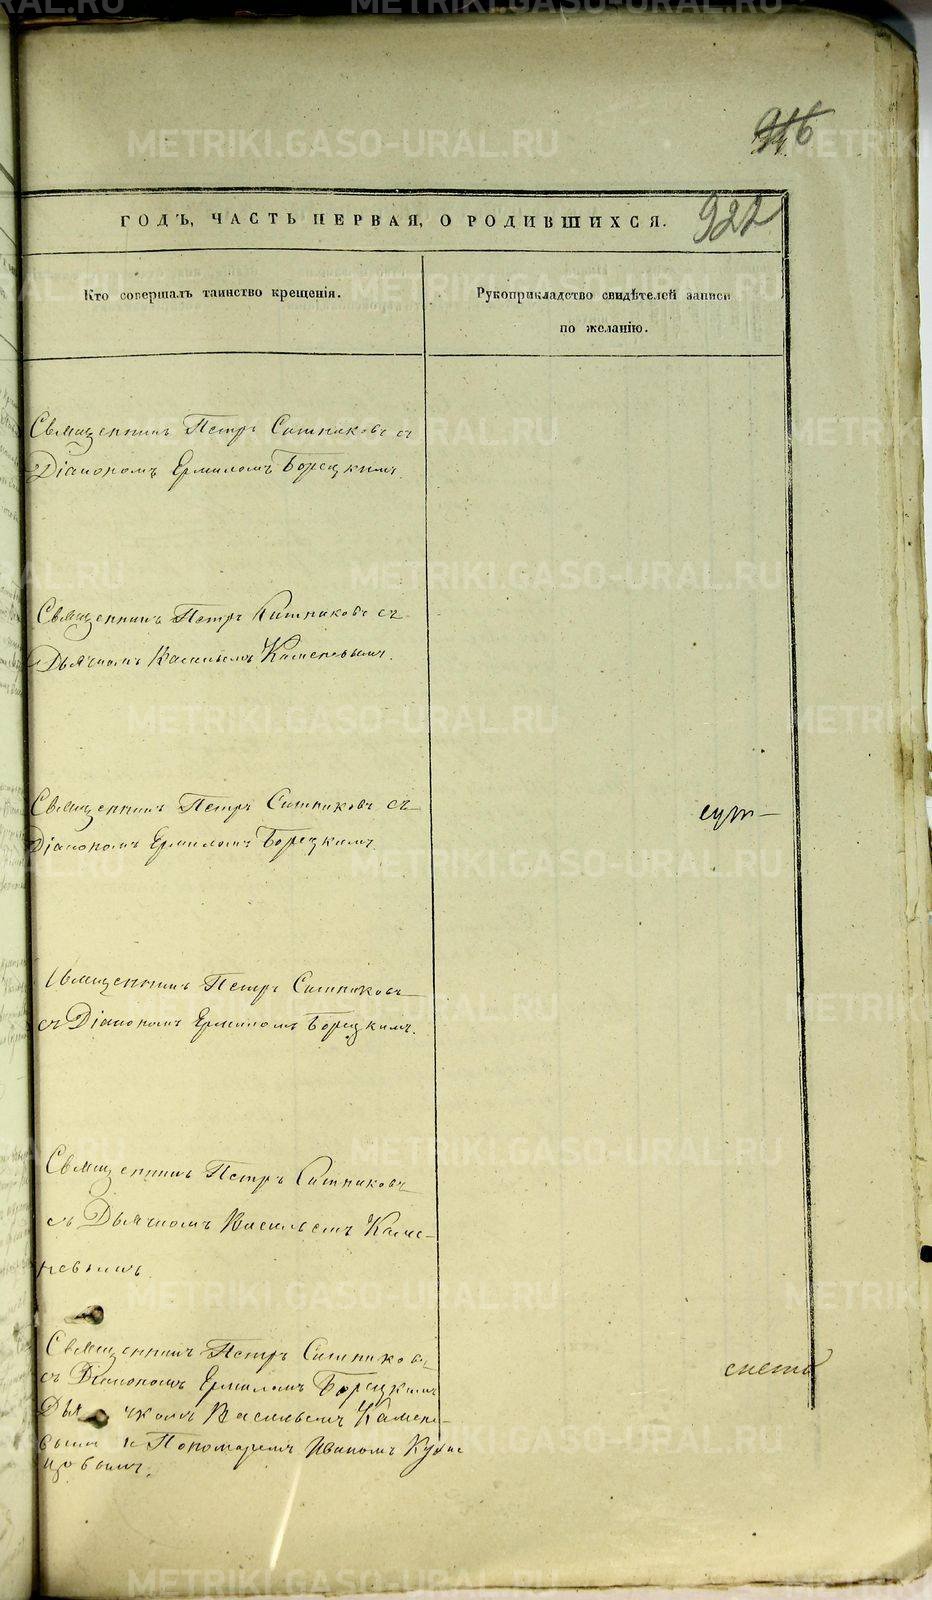 916
ГОДЪ, ЧАСТЬ ПЕРВАЯ, О РОДИВШИХСЯ.
922
Кто совершалъ таинство крещенія.
Рукоприкладство свидѣтелей записи
по желанію.
Священникъ Петръ Ситниковъ съ
Діакономъ Ермиломъ Борецкимъ.
Священникъ Петръ Ситниковъ съ
Дьячкомъ Васильемъ Каменевымъ.
Священникъ Петръ Ситниковъ съ
Діакономъ Ермиломъ Борецкимъ.
Священникъ Петръ Ситниковъ
съ Діакономъ Ермиломъ Борецкимъ.
Священникъ Петръ Ситниковъ
съ Дьячкомъ Васильемъ Каме-
невымъ
Священникъ Петръ Ситниковъ
съ Діакономъ Ермиломъ Борецкимъ
Дьячкомъ Васильемъ Камене-
вымъ и Пономаремъ Иваномъ Кузне
цовымъ.
METRIKI.GASO-URAL.RU